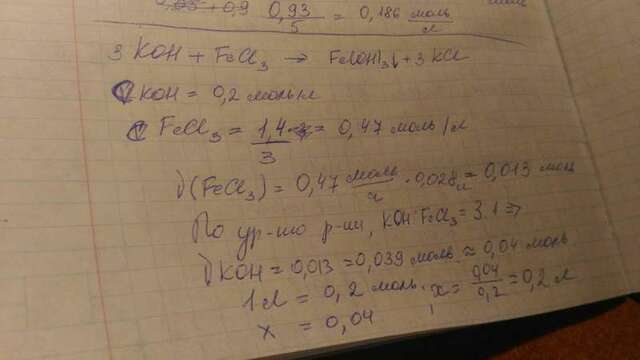 0,93/5 = 0,186 моль/л
3 KOH + FeCl3 → Fe(OH)3↓ + 3 KCl
C KOH = 0,2 моль/л
C FeCl3 = 1,4/3 = 0,47 моль/л
ν(FeCl3) = 0,47 моль/л · 0,028 л = 0,013 моль
По ур-нию р-ии, KOH:FeCl3 = 3:1 ⇒
ν KOH = 0,013 = 0,039 моль ≈ 0,04 моль
1 л = 0,2 моль, x = 0,04/0,2 = 0,2 л
x = 0,04